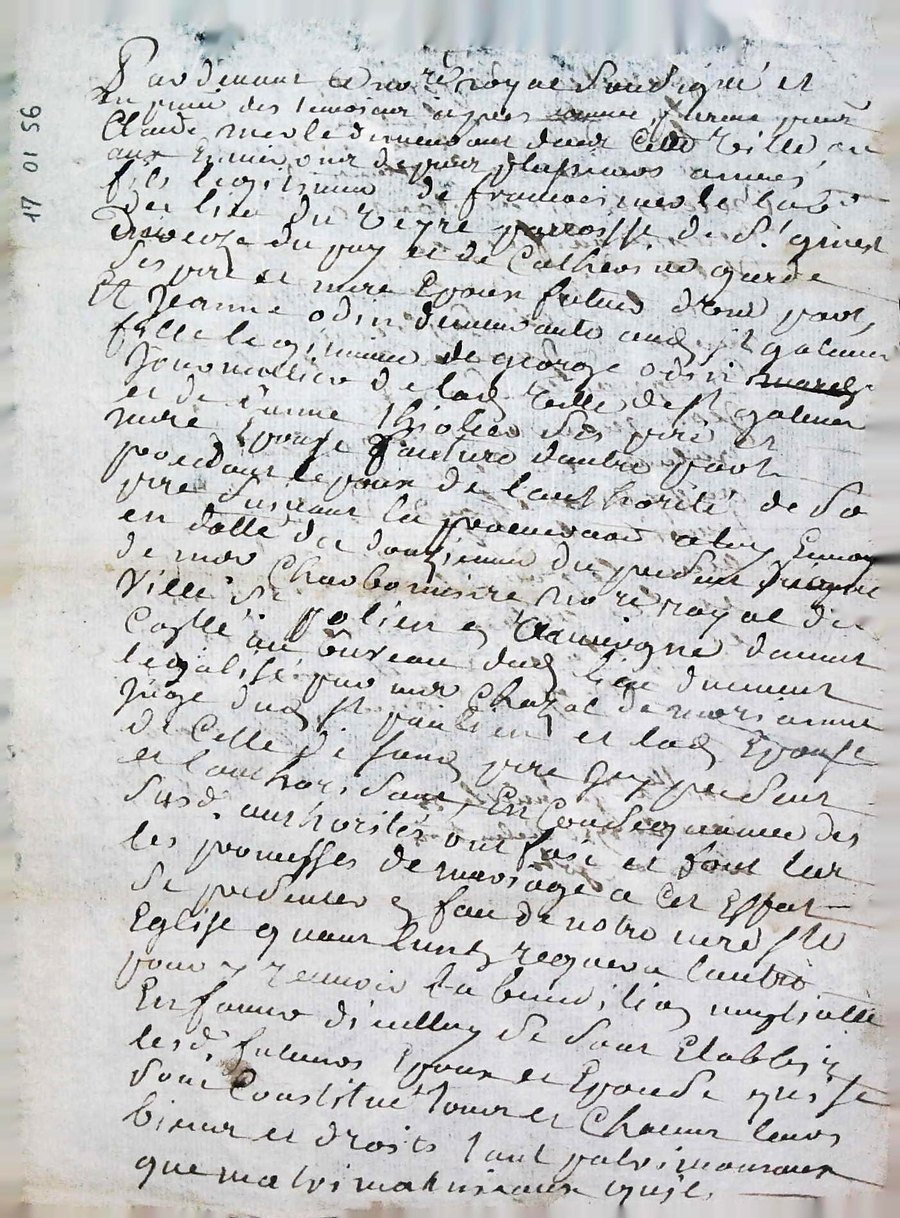 17 01 56
Pardevant le no.re royal Soussigné et
en presence des temoins apres
Claude merle demeurant dans cette ville
aux Environs depuis plusieurs années
fils legitime de francois merle lab.r
du lieu du Veyre parroisse de S.t ginest
Dioceze du puy et de Catherine garde
Ses pere et mere Epoux futur d'une part,
Et Jeanne odin demeurante aud. st galmier
fille legitime de george odin
Journallier de lad. Ville de st galmier
et de thiolier Ses pere et
mere Epouse future dautre part
procedant lepoux de l'authorité de Son
pere Suivant la procuration a luy
en datte du douzieme du present
de me Charbonniere no.re royal de
Ville de
Castle polien en Auvergne
au Bureau dud. lieu duement
legalisé par me Chazal de moriamne
Juge dud. st paulien et lad. Epouse
de Celle de Sond. pere Icy present
et l'authorisant, En Consequence des
Susd. authorités ont fait et font
les promesses de mariage a Cet Effet
Se presenter en face de notre mere Ste
Eglise quand lun en requerra lautre
pour y recevoir la benediction nuptialle
En faveur dicelluy Se Sont Etablis
lesd. futurs Epoux et Epouse qui se
Sont Constitué tous et Chacun leurs
biens et droits tant patrimoniaux
que matrimoniaux quils